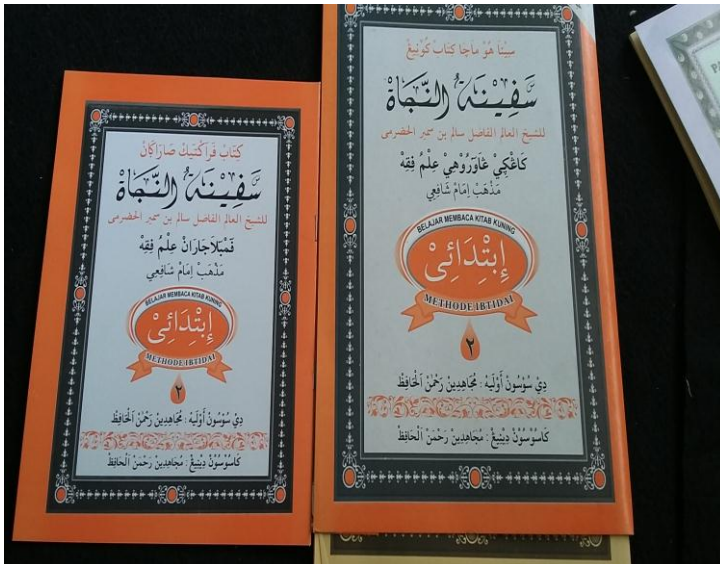 كتاب فراكتيك صاراكان
سَفِيْنَةُ النَّجَاةْ
للشيخ العالم الفاضل سالم بن سمير الحضرمى
فمبلاجاران عِلْمُ فِقِهْ
مَذْهَبْ اِمَامْ شَافِعِي
BELAJAR MEMBACA KITAB KUNING
إِبْتِدَائِىْ
METHODE IBTIDAI
٢
دِيْ سُوْسُونْ أَوْلَيهْ : مُجَاهِدِينْ رَحْمٰنْ اَلْحَافِظْ
كَاسُوْسُوْنْ دِيْنِيڠْ : مُجَاهِدِينْ رَحْمٰنْ اَلْحَافِظْ
سِيْنَا هُوْ مَاچَا كِتَابْ كُوْنِيڠْ
سَفِيْنَةُ النَّجَاةْ
للشيخ العالم الفاضل سالم بن سمير الحضرمى
كَاڠْكَيْ ڠَاوَرُوْهِيْ عِلْمُ فِقِهْ
مَذْهَبْ اِمَامْ شَافِعِي
BELAJAR MEMBACA KITAB KUNING
إِبْتِدَائِىْ
METHODE IBTIDAI
٢
دِيْ سُوْسُونْ أَوْلَيهْ : مُجَاهِدِينْ رَحْمٰنْ اَلْحَافِظْ
كَاسُوْسُوْنْ دِيْنِيڠْ : مُجَاهِدِينْ رَحْمٰنْ اَلْحَافِظْ